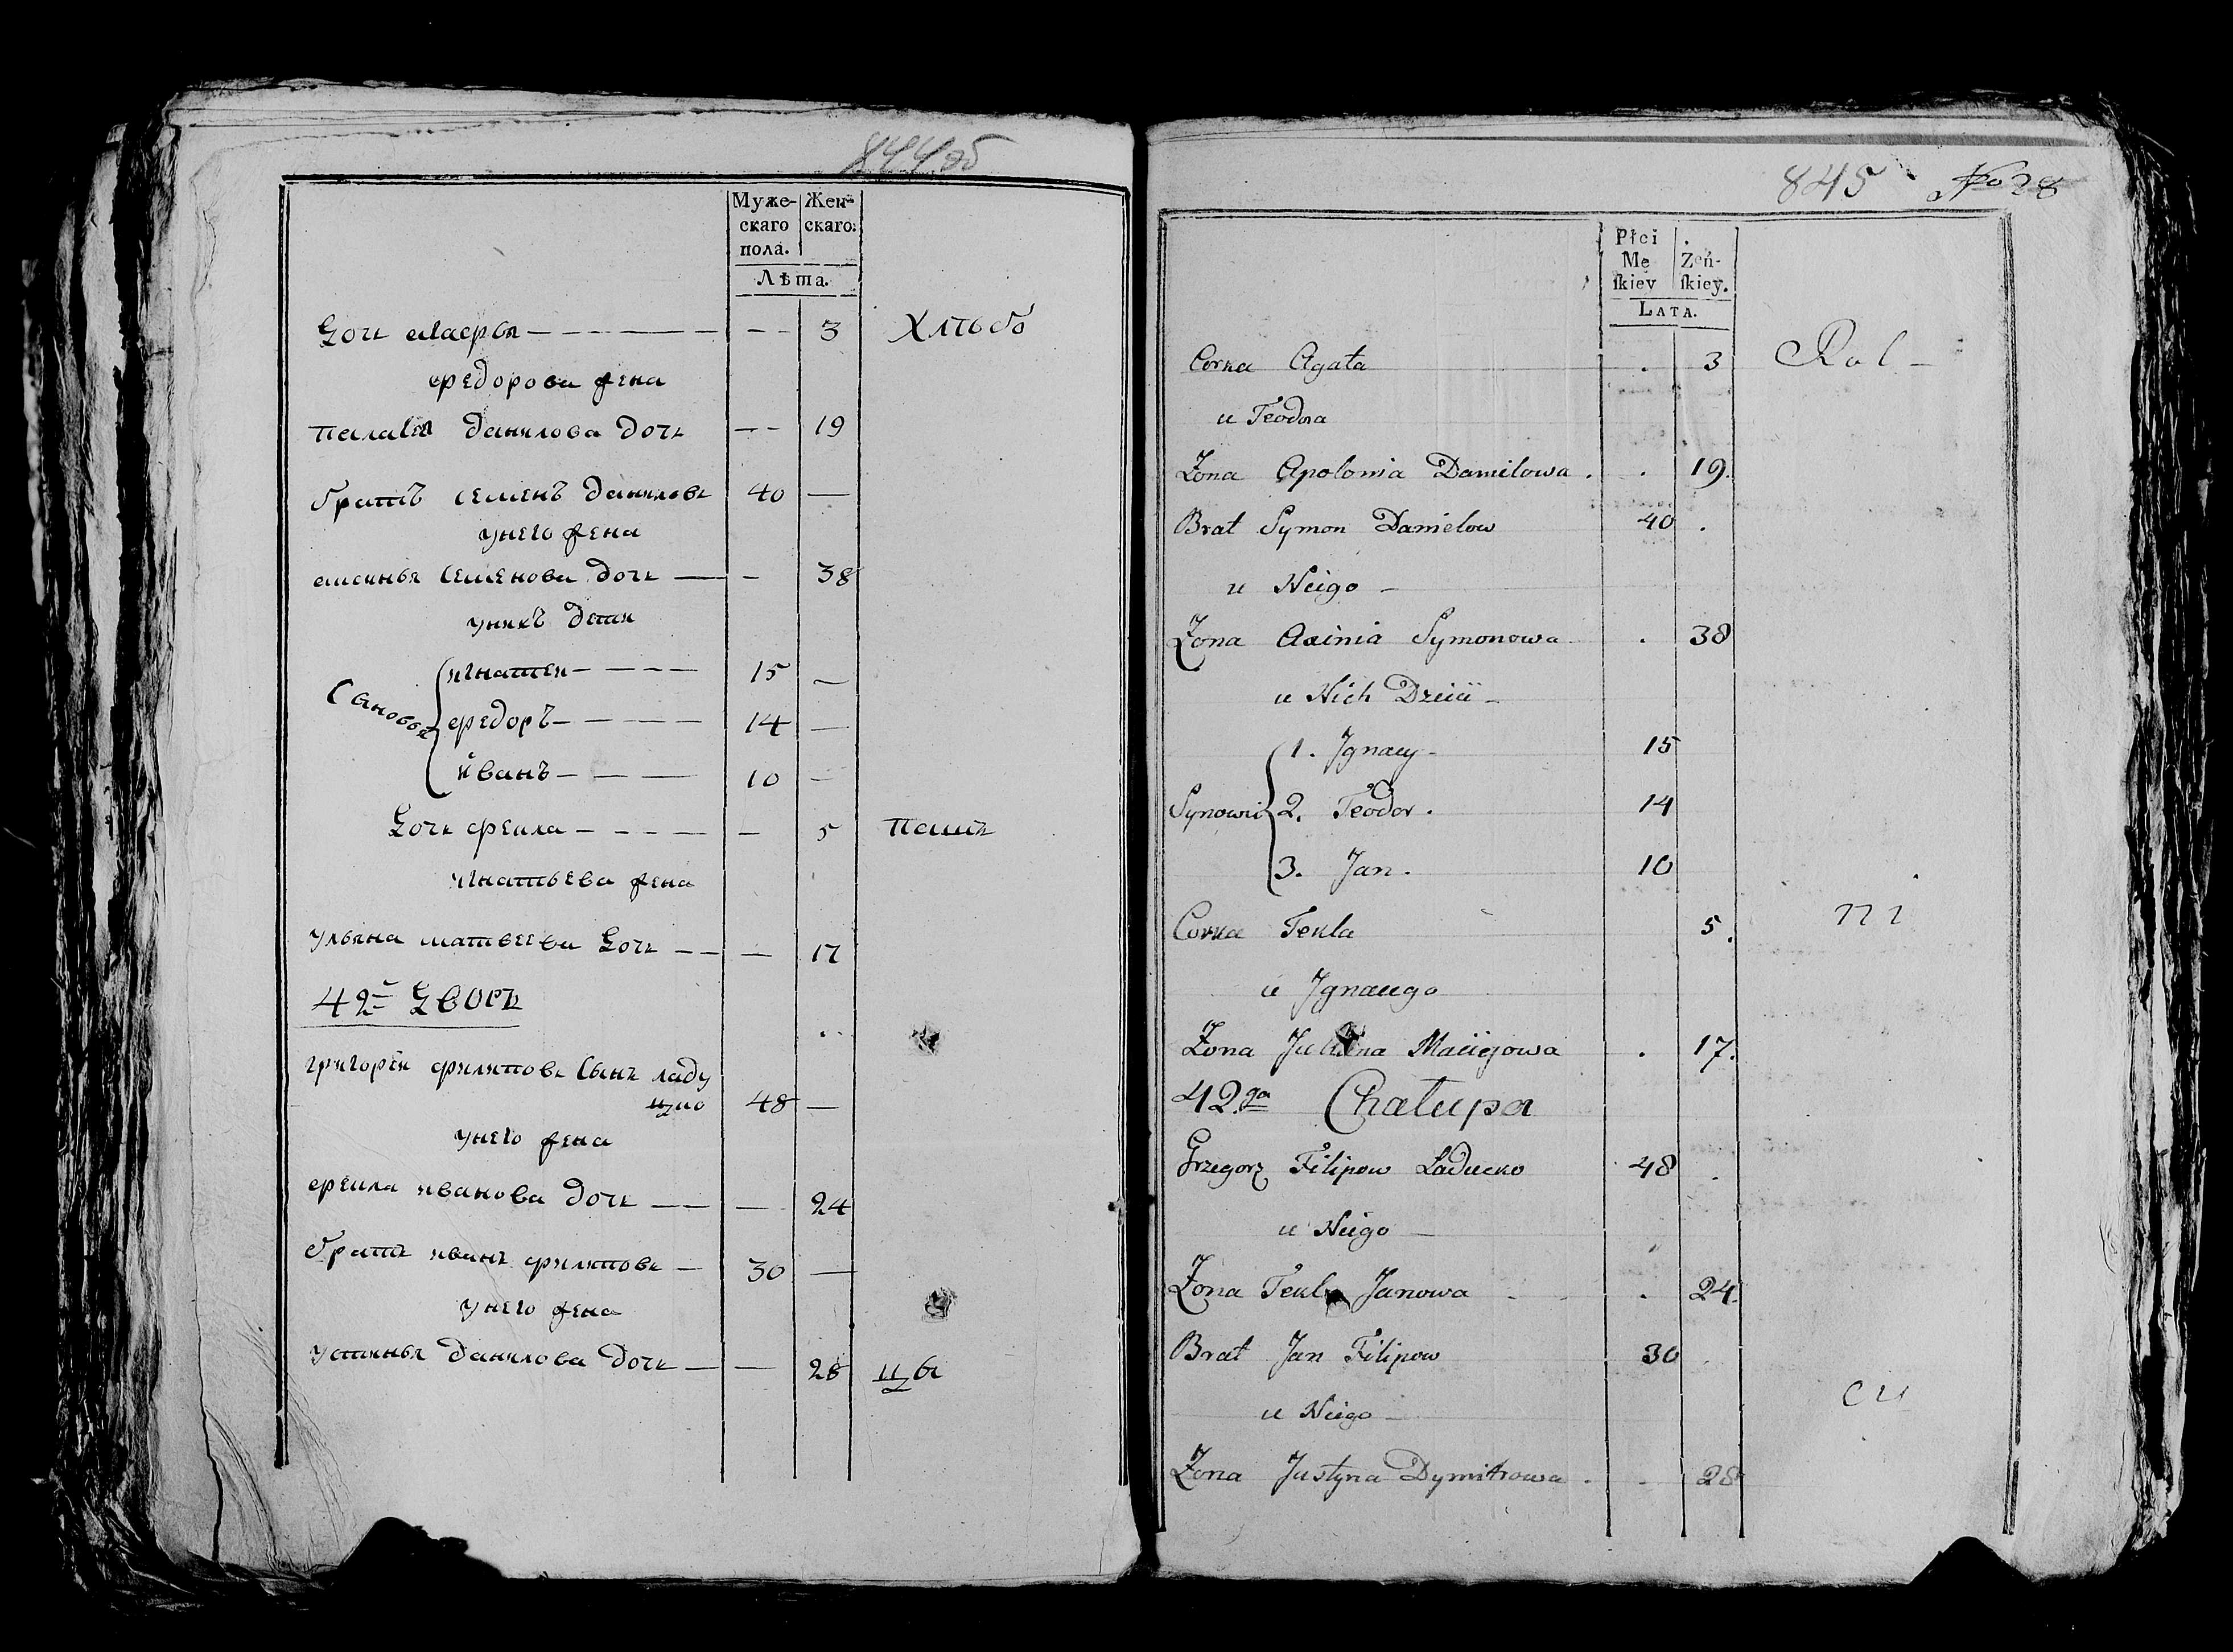 844об
Муже- Жен-
скаго скаго.
пола.
Лѣта.
Дочь 3 Хлѣбо
федорова жена
данилова дочь 19
братъ семенъ даниловъ 40
унего жена
аксинья семенова дочь 38
унихъ дети
игнатеи 15
Сыновья федоръ 14
иванъ 10
Дочь фекла 5 пашъ
игнатьева жена
Ульяна матвеева Дочь 17
42й Дворъ
григореи филиповъ Сынъ ладу
цко 48
унего жена
фекла иванова дочь 24
братъ иванъ филиповъ 30
унего жена
устинья данилова дочь 28 цы
845 No 28
Płci Zeń-
Mę skiey.
skiey
LATA.
Corka Agata 3 Rol
u Teodora
Zona Apolonia Danilowa 19.
Brat Symon Danielow 40
u Neigo
Zona Axinia Symonowa 38
u Nich Dzieci
1. Jgnacy 15
Synowie 2. Teodor. 14
3. Jan. 10
Corka Tekla 5. ni
u Jgnacego
Zona Juliena Maciejowa 17.
42ga Chałupa
Grzegorz Filipow Laducko 48
u Neigo
Zona Tekla Janowa 24.
Brat Jan Filipow 30
u Neigo cy
Zona Justyna Dymitrowa 28